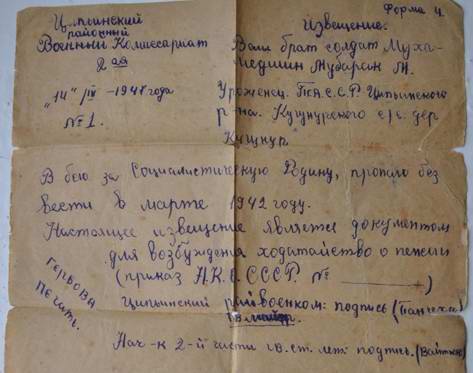 Форма 4
Ципьинский
районный
Военный Комиссариат
2 ая
"14" /IV -1947 года
№ 1.
Извещение.
Ваш брат солдат Муха-
медшин Мубаракъ М.
Уроженец. Т.А.С.С.Р. Ципьинского
р-на. Кушнурского с/с. дер
Кушнур
В бою за Социалистическую Родину, пропало без
вести в марте 1942 году.
Настоящее извещение является документом
для возбуждения ходатайство о пенсии
(приказ Н.К.О. СССР. №)
Гербова
печать.
Ципьинский райвоенком: подпись
майор.
Нач-к 2-й части гв. ст. лет: подпись.